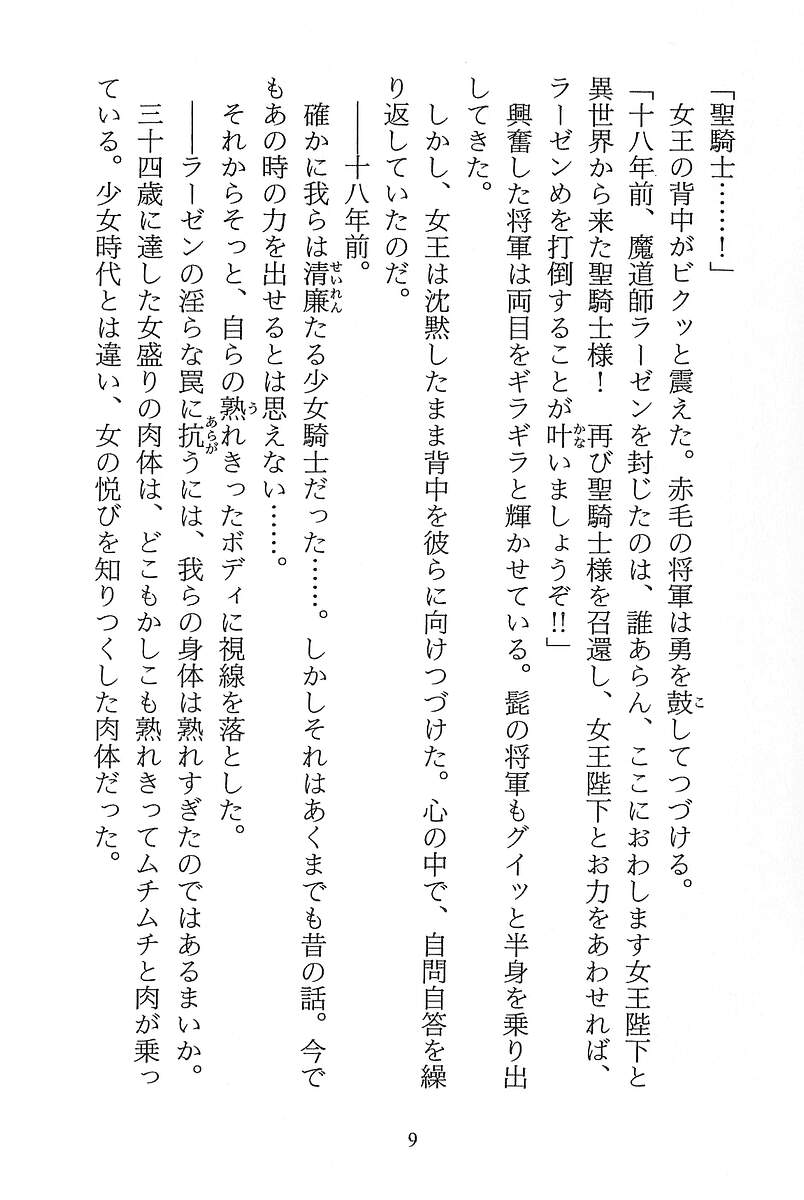 「聖騎士……！」
女王の背中がビクッと震えた。赤毛の将軍は勇を鼓してつづける。
「十八年前、魔道師ラーゼンを封じたのは、誰あらん、ここにおわします女王陛下と
異世界から来た聖騎士様！　再び聖騎士様を召還し、女王陛下とお力をあわせれば、
ラーゼンめを打倒することが叶いましょうぞ!!」
興奮した将軍は両目をギラギラと輝かせている。髭の将軍もグイッと半身を乗り出
してきた。
しかし、女王は沈黙したまま背中を彼らに向けつづけた。心の中で、自問自答を繰
り返していたのだ。
――十八年前。
確かに我らは清廉たる少女騎士だった……。しかしそれはあくまでも昔の話。今で
もあの時の力を出せるとは思えない……。
それからそっと、自らの熟れきったボディに視線を落とした。
――ラーゼンの淫らな罠に抗うには、我らの身体は熟れすぎたのではあるまいか。
三十四歳に達した女盛りの肉体は、どこもかしこも熟れきってムチムチと肉が乗っ
ている。少女時代とは違い、女の悦びを知りつくした肉体だった。
9